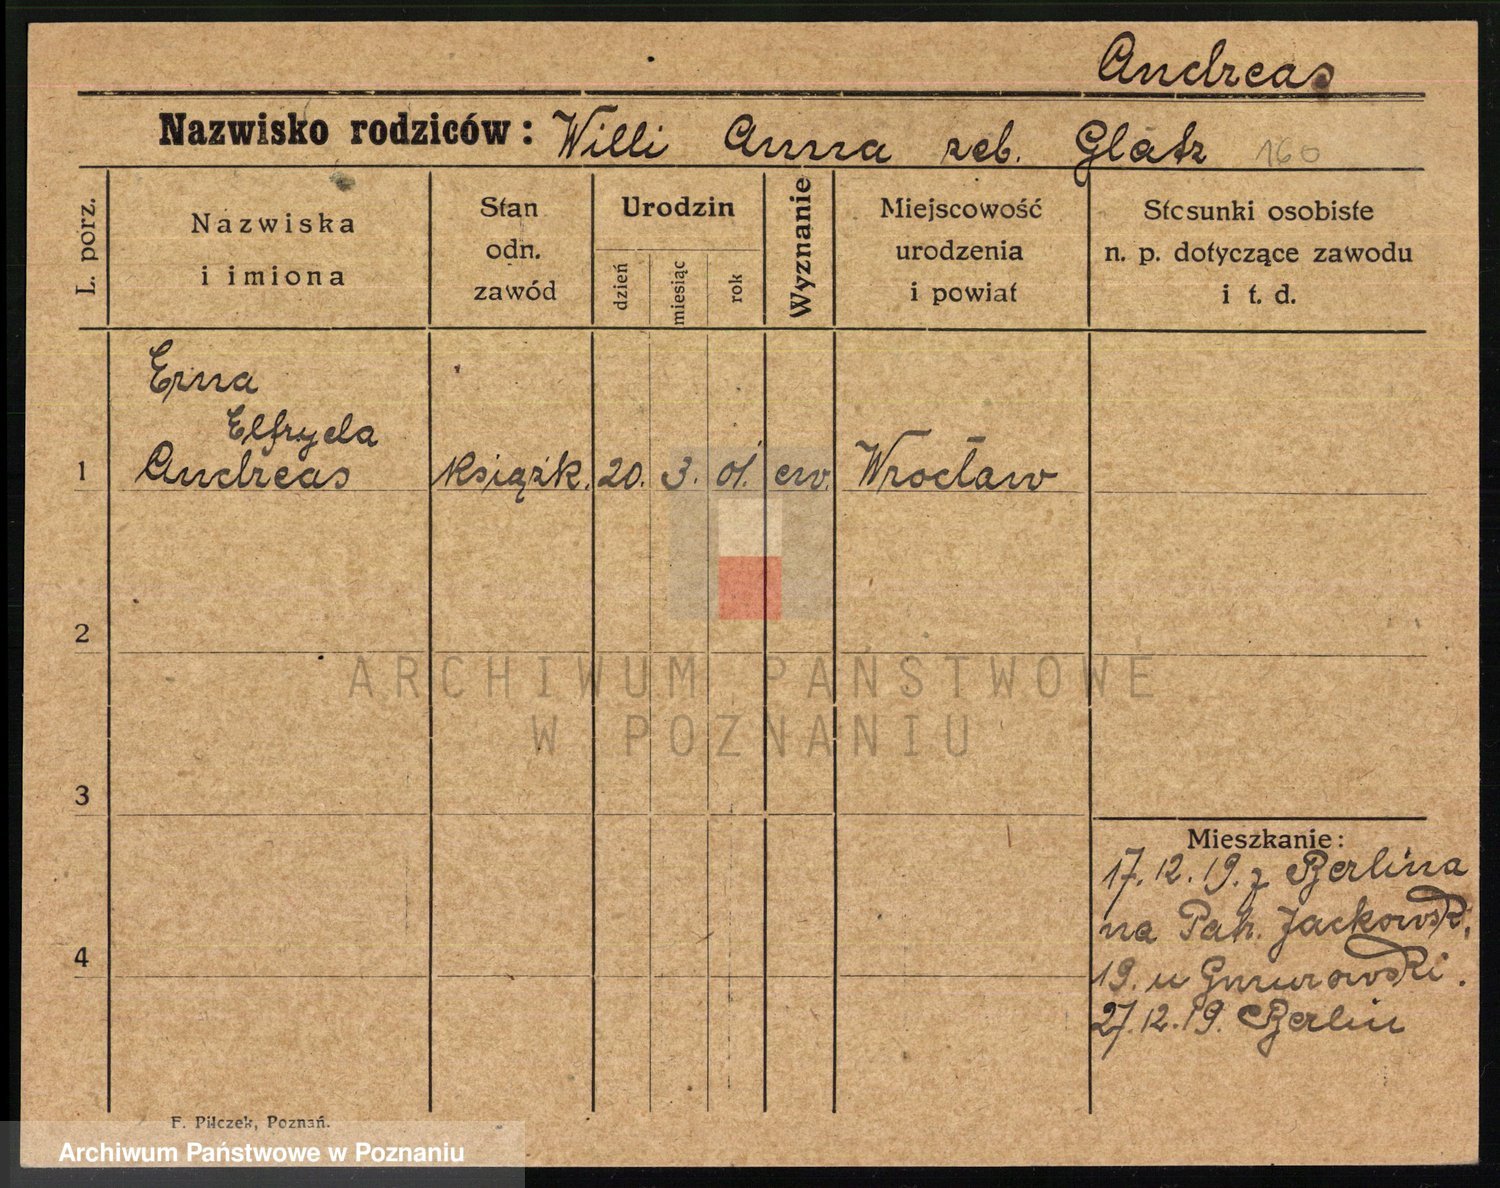 Andreas
Nazwisko rodziców: Willi Anna zeb. Glatz 160
L. porz.
Nazwiska
i imiona
Stan
odn.
zawód
Urodzin
dzień
miesiąc
rok
Wyznanie
Miejscowość
urodzenia
i powiat
Stosunki osobiste
n. p. dotyczące zawodu
i t. d.
Erna
Elfryda
1 Andreas książk. 20. 3. 01. ew. Wrocław
2
3
4
Mieszkanie:
17.12.19. z Berlina
na Pah. Jackowsk.
19. u Gmurowski.
27.12.19. Berlin
F. Piłczek, Poznań.
ARCHIWUM PAŃSTWOWE
W POZNANIU
Archiwum Państwowe w Poznaniu